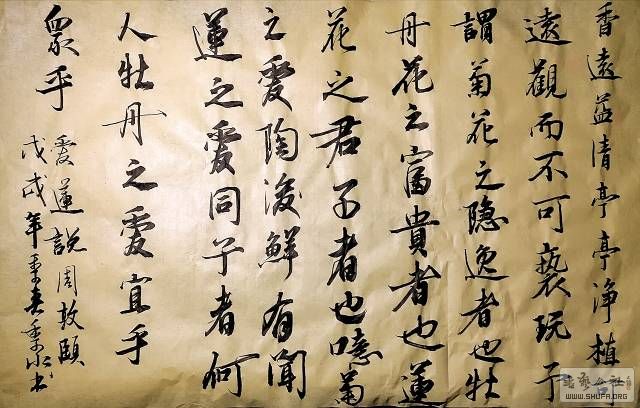 香遠益清亭亭浄植可
遠觀而不可褻玩予
謂菊花之隐逸者也牡
丹花之富貴者也蓮
花之君子者也噫菊
之愛陶後鮮有聞
蓮之愛同予者何
人牡丹之愛宜乎
衆乎
愛蓮説周敦頤
戊戌年季春季冰书
WWW.SHUFA.ORG